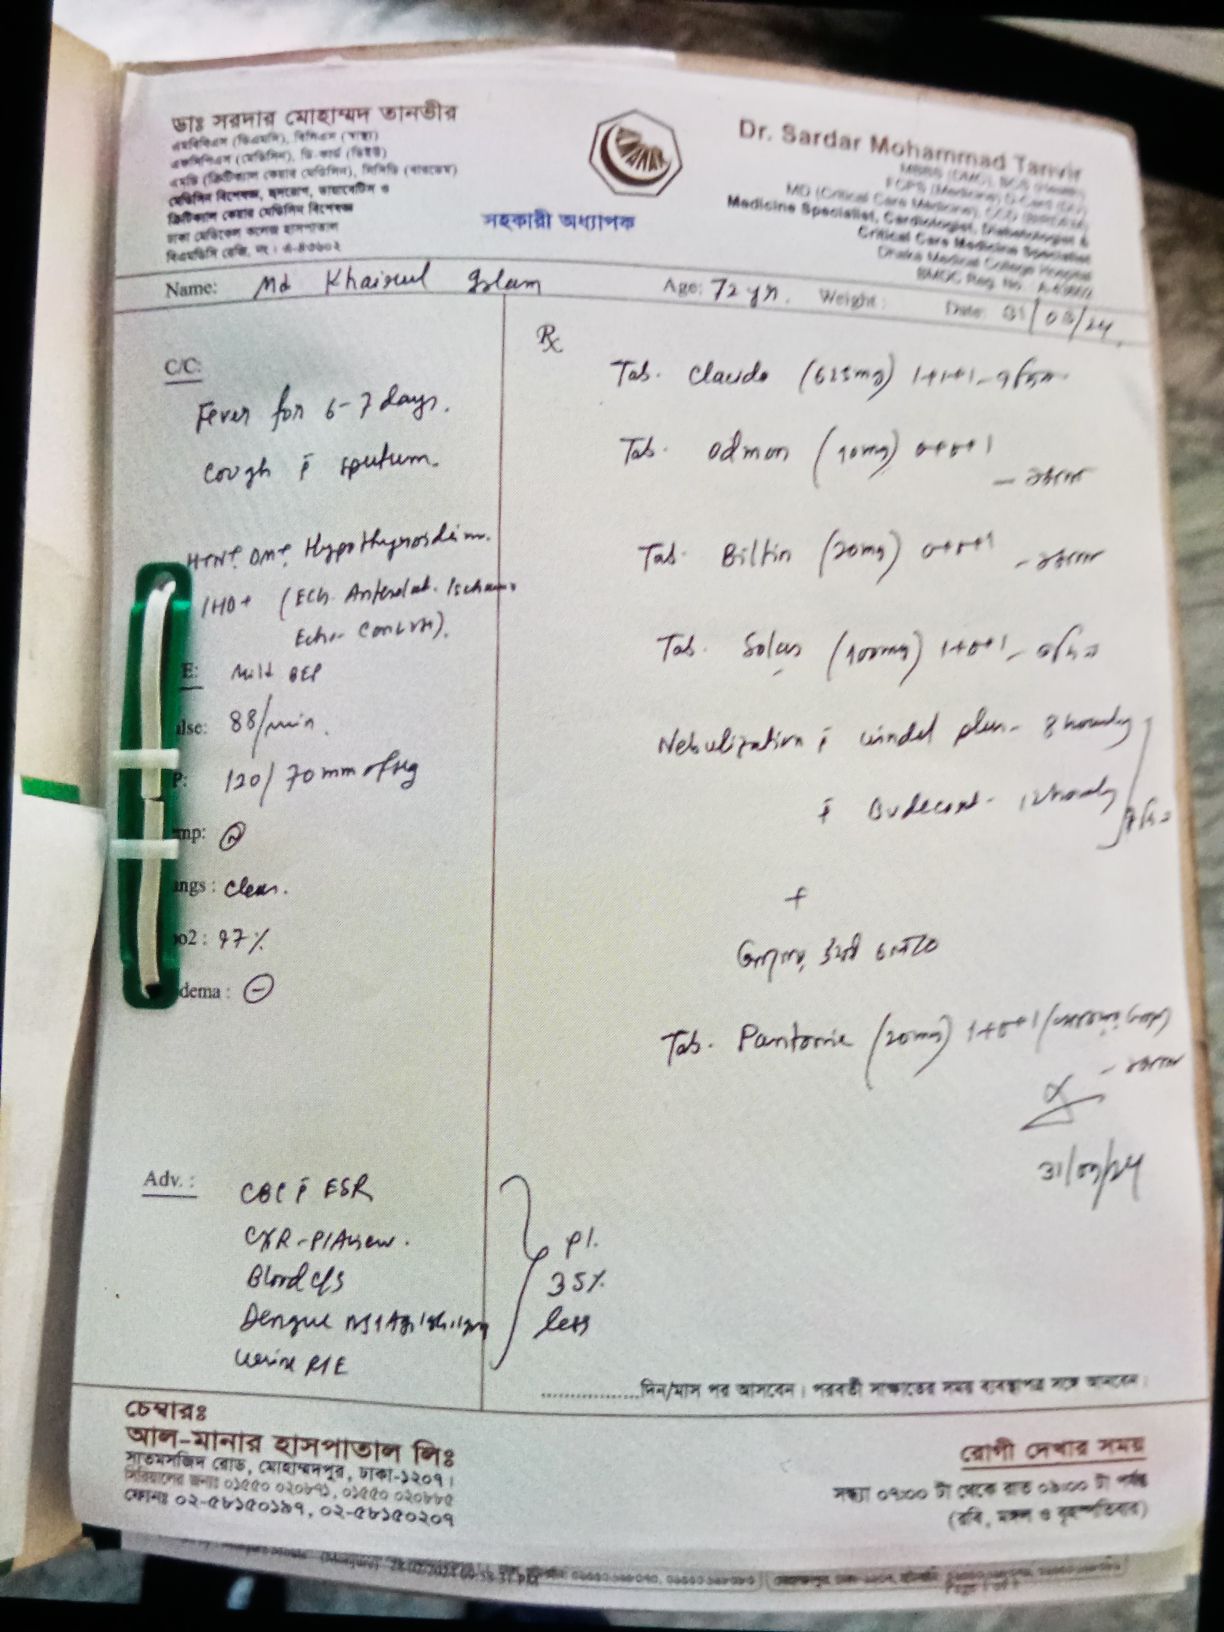 ডাঃ সরদার মোহাম্মদ তানভীর
এমবিবিএস (ডিএমসি), বিসিএস (স্বাস্থ্য)
এফসিপিএস (মেডিসিন), ডি-কার্ড (ডিইউ)
এমডি (ক্রিটিক্যাল কেয়ার মেডিসিন), সিসিডি (বারডেম)
মেডিসিন বিশেষজ্ঞ, হৃদরোগ, ডায়াবেটিস ও
ক্রিটিক্যাল কেয়ার মেডিসিন বিশেষজ্ঞ
ঢাকা মেডিকেল কলেজ হাসপাতাল
বিএমডিসি রেজি, নং : এ-৪৩৬০২
সহকারী অধ্যাপক
Dr. Sardar Mohammad Tanvir
MBBS (DMC), BCS (Health)
FCPS (Medicine) D-Card (DU)
MD (Critical Care Medicine), CCD (BIRDEM)
Medicine Specialist, Cardiologist, Diabetologist &
Critical Care Medicine Specialist
Dhaka Medical College Hospital
BMDC Reg. No. A-43602
Name: Md Khairul Islam Age: 72 yr. Weight: Date: 31/03/24
C/C:
Fever for 6-7 days.
Cough c̄ sputum.
HTN+ DM+ Hypothyroidism.
IHD+ (ECG. Anterolat. Ischaemia
E: Mild
lse: 88/min.
P: 120/70 mm of Hg
mp: N
ngs : Clear.
o2 : 97%
dema : −
Rx
Tab. Clavido (625mg) 1+1+1
Tab. Odmon (10mg) 0+0+1
Tab. Biltin (20mg) 0+0+1
Tab. (400mg) 1+0+1
Nebulization c̄ windel plus - 8 hourly
c̄ Budecort - 12 hourly
+
Tab. Pantonix (20mg) 1+0+1
31/03/24
Adv. :
CBC c̄ ESR
CXR-P/A view.
Blood c/s
Dengue NS1 Ag
Urine R/E
pl.
35%
less
দিন/মাস পর আসবেন। পরবর্তী সাক্ষাতের সময় ব্যবস্থাপত্র সঙ্গে আনবেন।
চেম্বারঃ
আল-মানার হাসপাতাল লিঃ
সাতমসজিদ রোড, মোহাম্মদপুর, ঢাকা-১২০৭।
সিরিয়ালের জন্যঃ ০১৫৫০ ০২০৮৭১, ০১৫৫০ ০২০৮৮৫
ফোনঃ ০২-৫৮১৫০১৯৭, ০২-৫৮১৫০২০৭
রোগী দেখার সময়
সন্ধ্যা ০৭:০০ টা থেকে রাত ০৯:০০ টা পর্যন্ত
(রবি, মঙ্গল ও বৃহস্পতিবার)